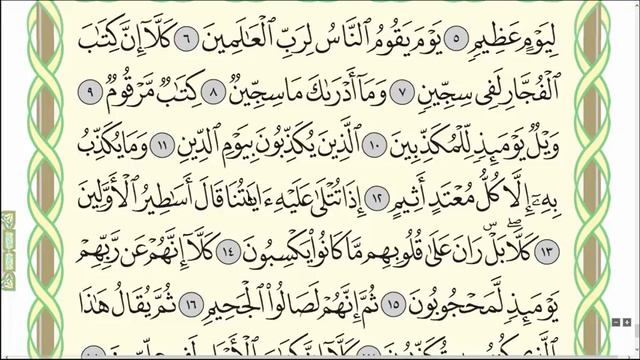 لِيَوْمٍ عَظِيمٍ ٥ يَوْمَ يَقُومُ ٱلنَّاسُ لِرَبِّ ٱلْعَٰلَمِينَ ٦ كَلَّآ إِنَّ كِتَٰبَ
ٱلْفُجَّارِ لَفِى سِجِّينٍ ٧ وَمَآ أَدْرَىٰكَ مَا سِجِّينٌ ٨ كِتَٰبٌ مَّرْقُومٌ ٩
وَيْلٌ يَوْمَئِذٍ لِّلْمُكَذِّبِينَ ١٠ ٱلَّذِينَ يُكَذِّبُونَ بِيَوْمِ ٱلدِّينِ ١١ وَمَا يُكَذِّبُ
بِهِۦٓ إِلَّا كُلُّ مُعْتَدٍ أَثِيمٍ ١٢ إِذَا تُتْلَىٰ عَلَيْهِ ءَايَٰتُنَا قَالَ أَسَٰطِيرُ ٱلْأَوَّلِينَ
١٣ كَلَّاۖ بَلْۜ رَانَ عَلَىٰ قُلُوبِهِم مَّا كَانُوا۟ يَكْسِبُونَ ١٤ كَلَّآ إِنَّهُمْ عَن رَّبِّهِمْ
يَوْمَئِذٍ لَّمَحْجُوبُونَ ١٥ ثُمَّ إِنَّهُمْ لَصَالُوا۟ ٱلْجَحِيمِ ١٦ ثُمَّ يُقَالُ هَٰذَا